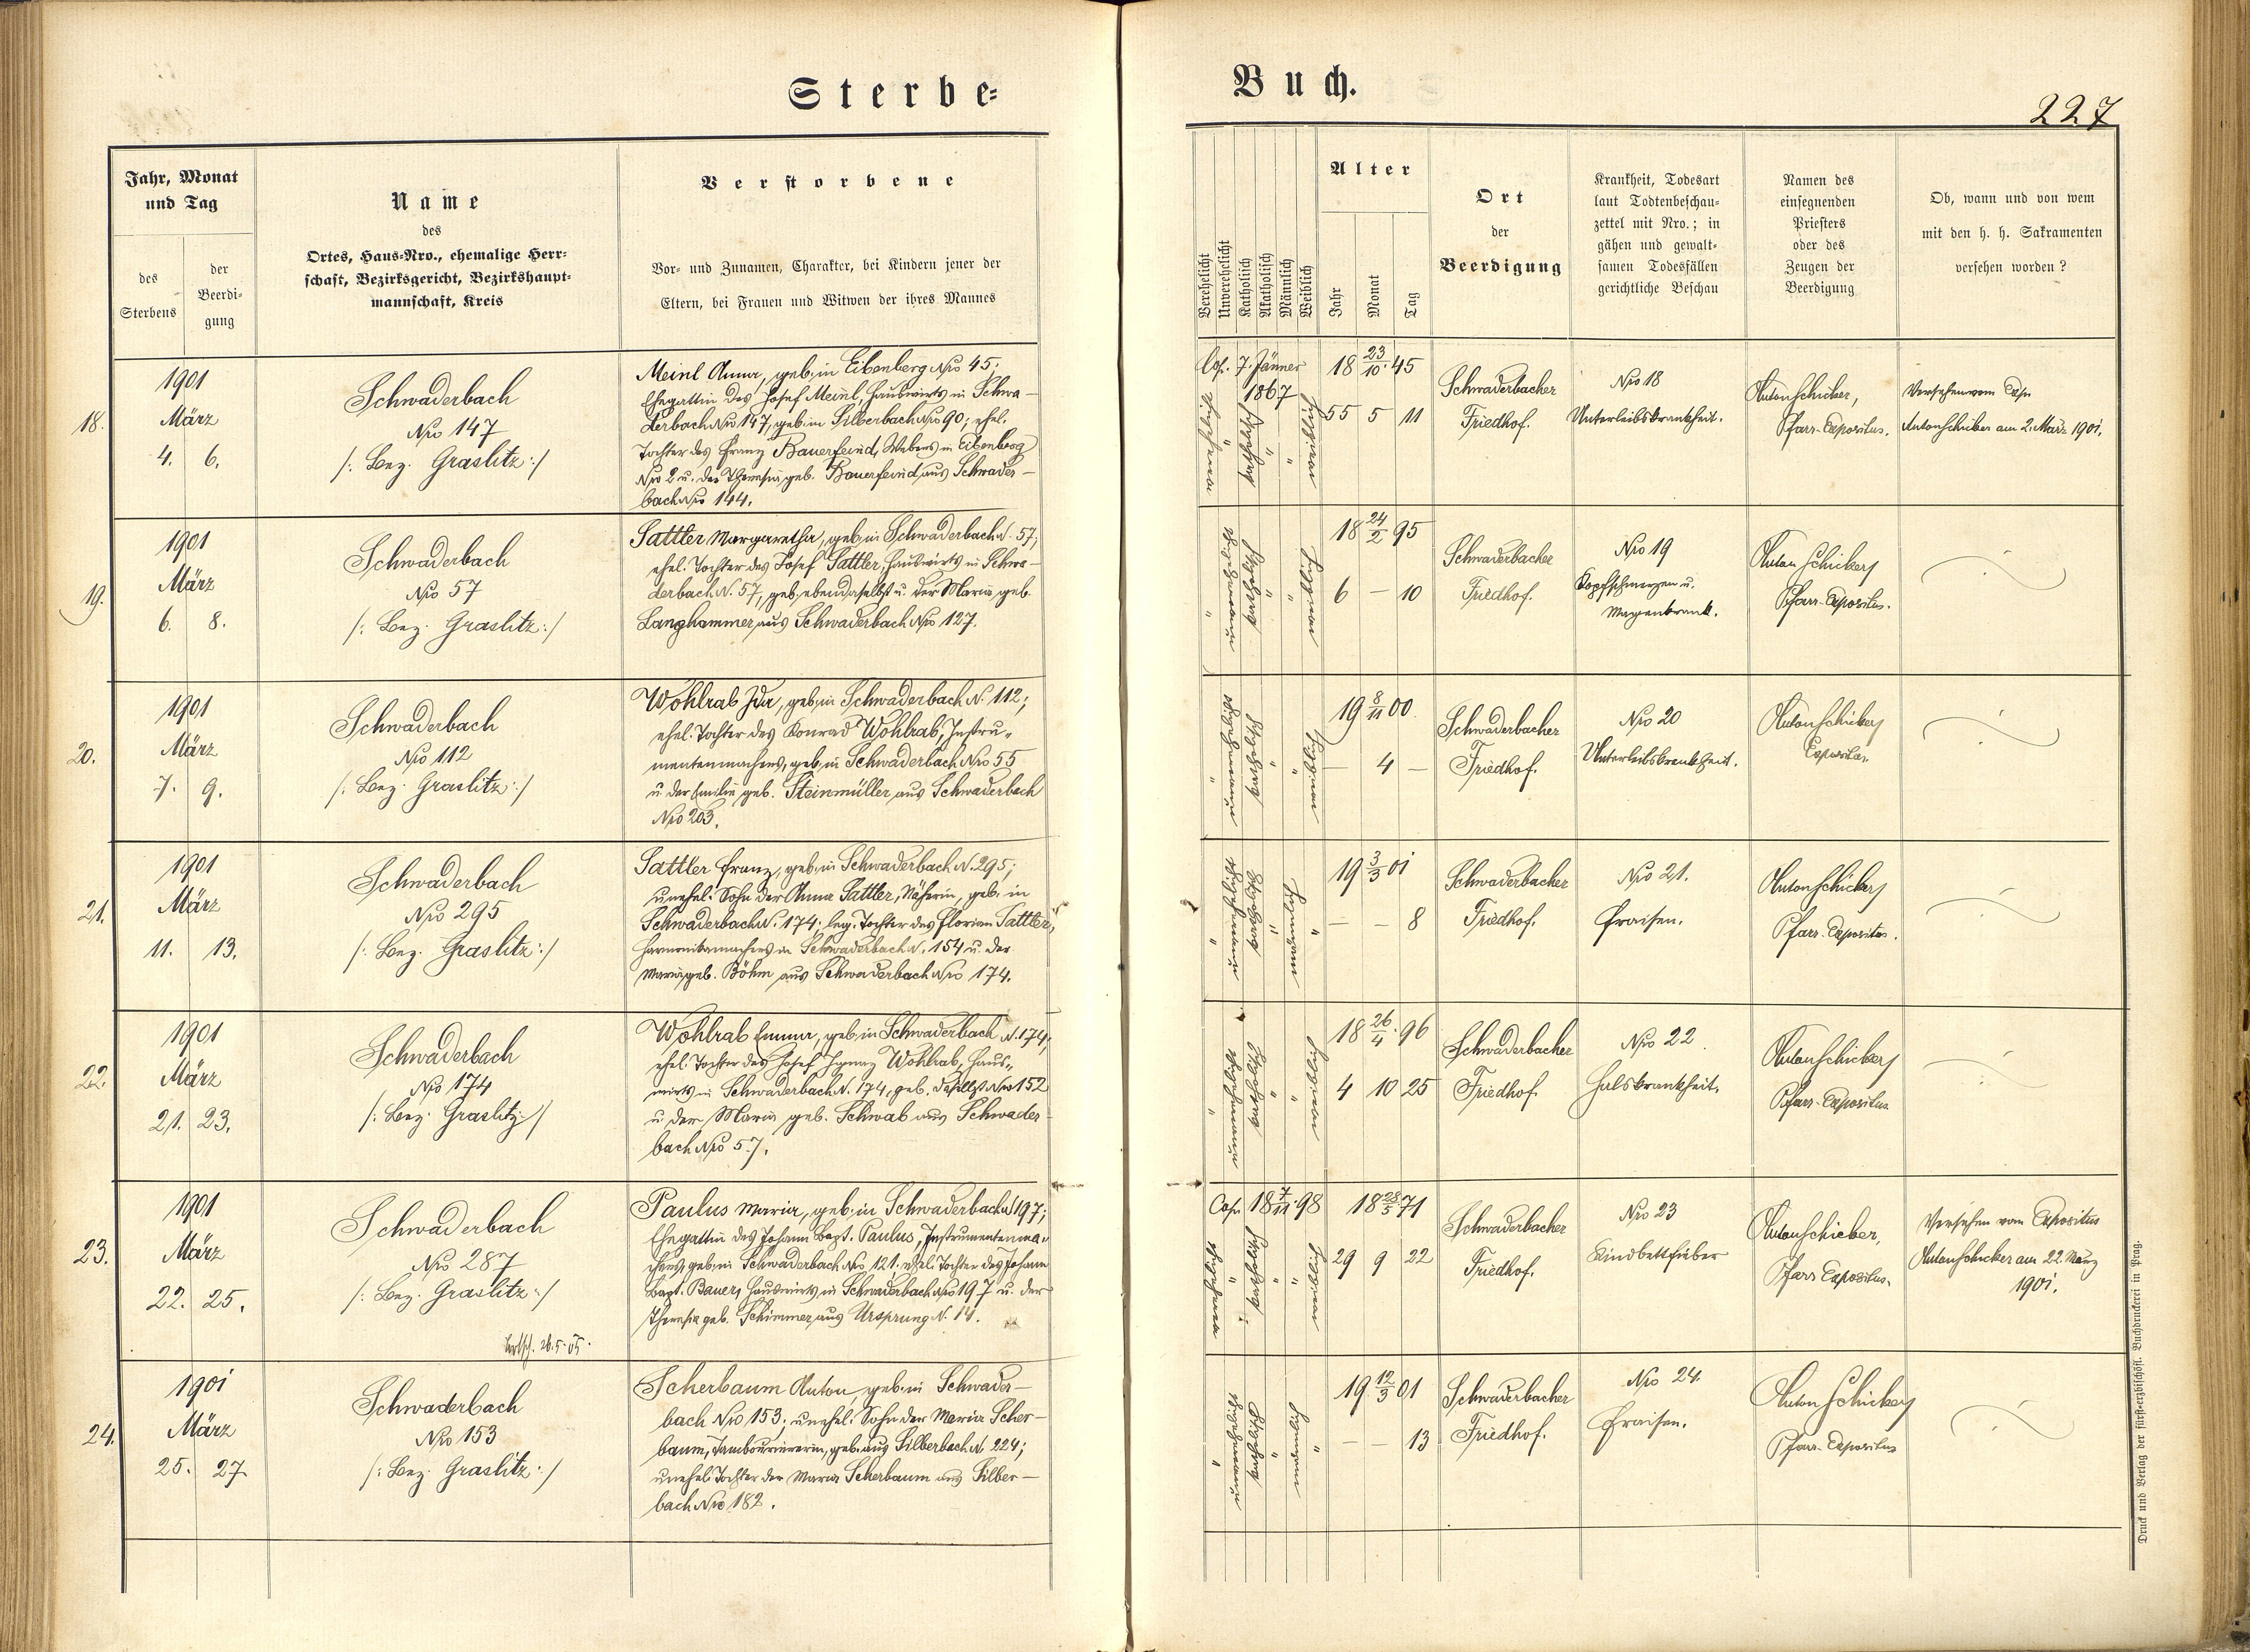 Sterbe-
Buch.
227
Jahr, Monat
und Tag
des
Sterbens
der
Beerdi-
gung
Name
des
Ortes, Haus-Nro., ehemalige Herr-
schaft, Bezirksgericht, Bezirkshaupt-
mannschaft, Kreis
Verstorbene
Vor- und Zunamen, Charakter, bei Kindern jener der
Eltern, bei Frauen und Witwen der ihres Mannes
Verehelicht
Unverehelicht
Katholisch
Akatholisch
Männlich
Weiblich
Alter
Jahr
Monat
Tag
Ort
der
Beerdigung
Krankheit, Todesart
laut Todtenbeschau-
zettel mit Nro.; in
gähen und gewalt-
samen Todesfällen
gerichtliche Beschau
Namen des
einsegnenden
Priesters
oder des
Zeugen der
Beerdigung
Ob, wann und von wem
mit den h. h. Sakramenten
versehen worden?
18.
1901
März
4. 6.
Schwaderbach
Nro 147
/: Bez. Graslitz :/
Meinl Anna, geb. in Eibenberg Nro 45;
Ehegattin des Josef Meinl, Hauswirts in Schwa-
derbach Nro 147, geb. in Silberbach Nro 90; ehel.
Tochter des Franz Bauerfeind, Webers in Eibenberg
Nro 2 u. der Theresia geb. Bauerfeind aus Schwader-
bach Nro 144.
Cop. 7. Jänner
1867
18 23/10. 45
55 5 11
Schwaderbacher
Friedhof.
Nro 18
Unterleibskrankheit.
Anton Schicker,
Pfarr-Expositus.
Versehen vom Exp.
Anton Schicker am 2. März 1901.
19.
1901
März
6. 8.
Schwaderbach
Nro 57
/: Bez. Graslitz :/
Sattler Margaretha, geb. in Schwaderbach N. 57;
ehel. Tochter des Josef Sattler, Hauswirts in Schwa-
derbach N. 57, geb. ebendaselbst u. der Maria geb.
Langhammer aus Schwaderbach Nro 127.
18 24/2 95
6 – 10
Schwaderbacher
Friedhof.
Nro 19
Kopfschmerzen u.
Magenkrank.
Anton Schicker
Pfarr-Expositus.
20.
1901
März
7. 9.
Schwaderbach
Nro 112
/: Bez. Graslitz :/
Wohlrab Ida, geb. in Schwaderbach N. 112;
ehel. Tochter des Konrad Wohlrab, Instru-
mentenmachers, geb. in Schwaderbach Nro 55
u. der Emilie geb. Steinmüller aus Schwaderbach
Nro 203.
19 8/11 00
– 4 –
Schwaderbacher
Friedhof.
Nro 20
Unterleibskrankheit.
Anton Schicker
Expositus.
21.
1901
März
11. 13.
Schwaderbach
Nro 295
/: Bez. Graslitz :/
Sattler Franz, geb. in Schwaderbach N. 295;
unehel. Sohn der Anna Sattler, Näherin, geb. in
Schwaderbach N. 174; leg. Tochter des Florian Sattler,
Harmonikamachers in Schwaderbach N. 154 u. der
Maria, geb. Böhm aus Schwaderbach Nro 174.
19 3/3 01
– – 8
Schwaderbacher
Friedhof.
Nro 21.
Fraisen.
Anton Schicker
Pfarr-Expositus.
22.
1901
März
21. 23.
Schwaderbach
Nro 174
/: Bez. Graslitz :/
Wohlrab Emma, geb. in Schwaderbach N. 174;
ehel. Tochter des Josef Ignaz Wohlrab, Haus-
wirts in Schwaderbach N. 174, geb. daselbst Nro 152
u. der Maria geb. Schwab aus Schwader-
bach Nro 57.
18 26/4. 96
4 10 25
Schwaderbacher
Friedhof.
Nro 22
Halskrankheit.
Anton Schicker
Pfarr-Expositus
23.
1901
März
22. 25.
Schwaderbach
Nro 287
/: Bez. Graslitz :/
26.5.05.
Paulus Maria, geb. in Schwaderbach N 197;
Ehegattin des Johann Bapt. Paulus, Instrumentenma-
chers, geb. in Schwaderbach Nro 121. ehel. Tochter des Johann
Bapt. Bauer, Hauswirts in Schwaderbach Nro 197 u. der
Theresia geb. Schimmer aus Ursprung N. 14.
Cop. 18 7/11. 98
18 28/5 71
29 9 22
Schwaderbacher
Friedhof.
Nro 23
Kindbettfieber
Anton Schicker,
Pfarr Expositus.
Versehen vom Expositus
Anton Schicker am 22. März
1901.
24.
1901
März
25. 27.
Schwaderbach
Nro 153
/: Bez. Graslitz :/
Scherbaum Anton, geb. in Schwader-
bach Nro 153; unehel. Sohn der Maria Scher-
baum, Tambouriererin, geb. aus Silberbach N. 224;
unehel. Tochter der Maria Scherbaum aus Silber-
bach Nro 182.
19 12/3 01
– – 13
Schwaderbacher
Friedhof.
Nro 24.
Fraisen.
Anton Schicker
Pfarr-Expositus
Druck und Verlag der fürst-erzbischöfl. Buchdruckerei in Prag.